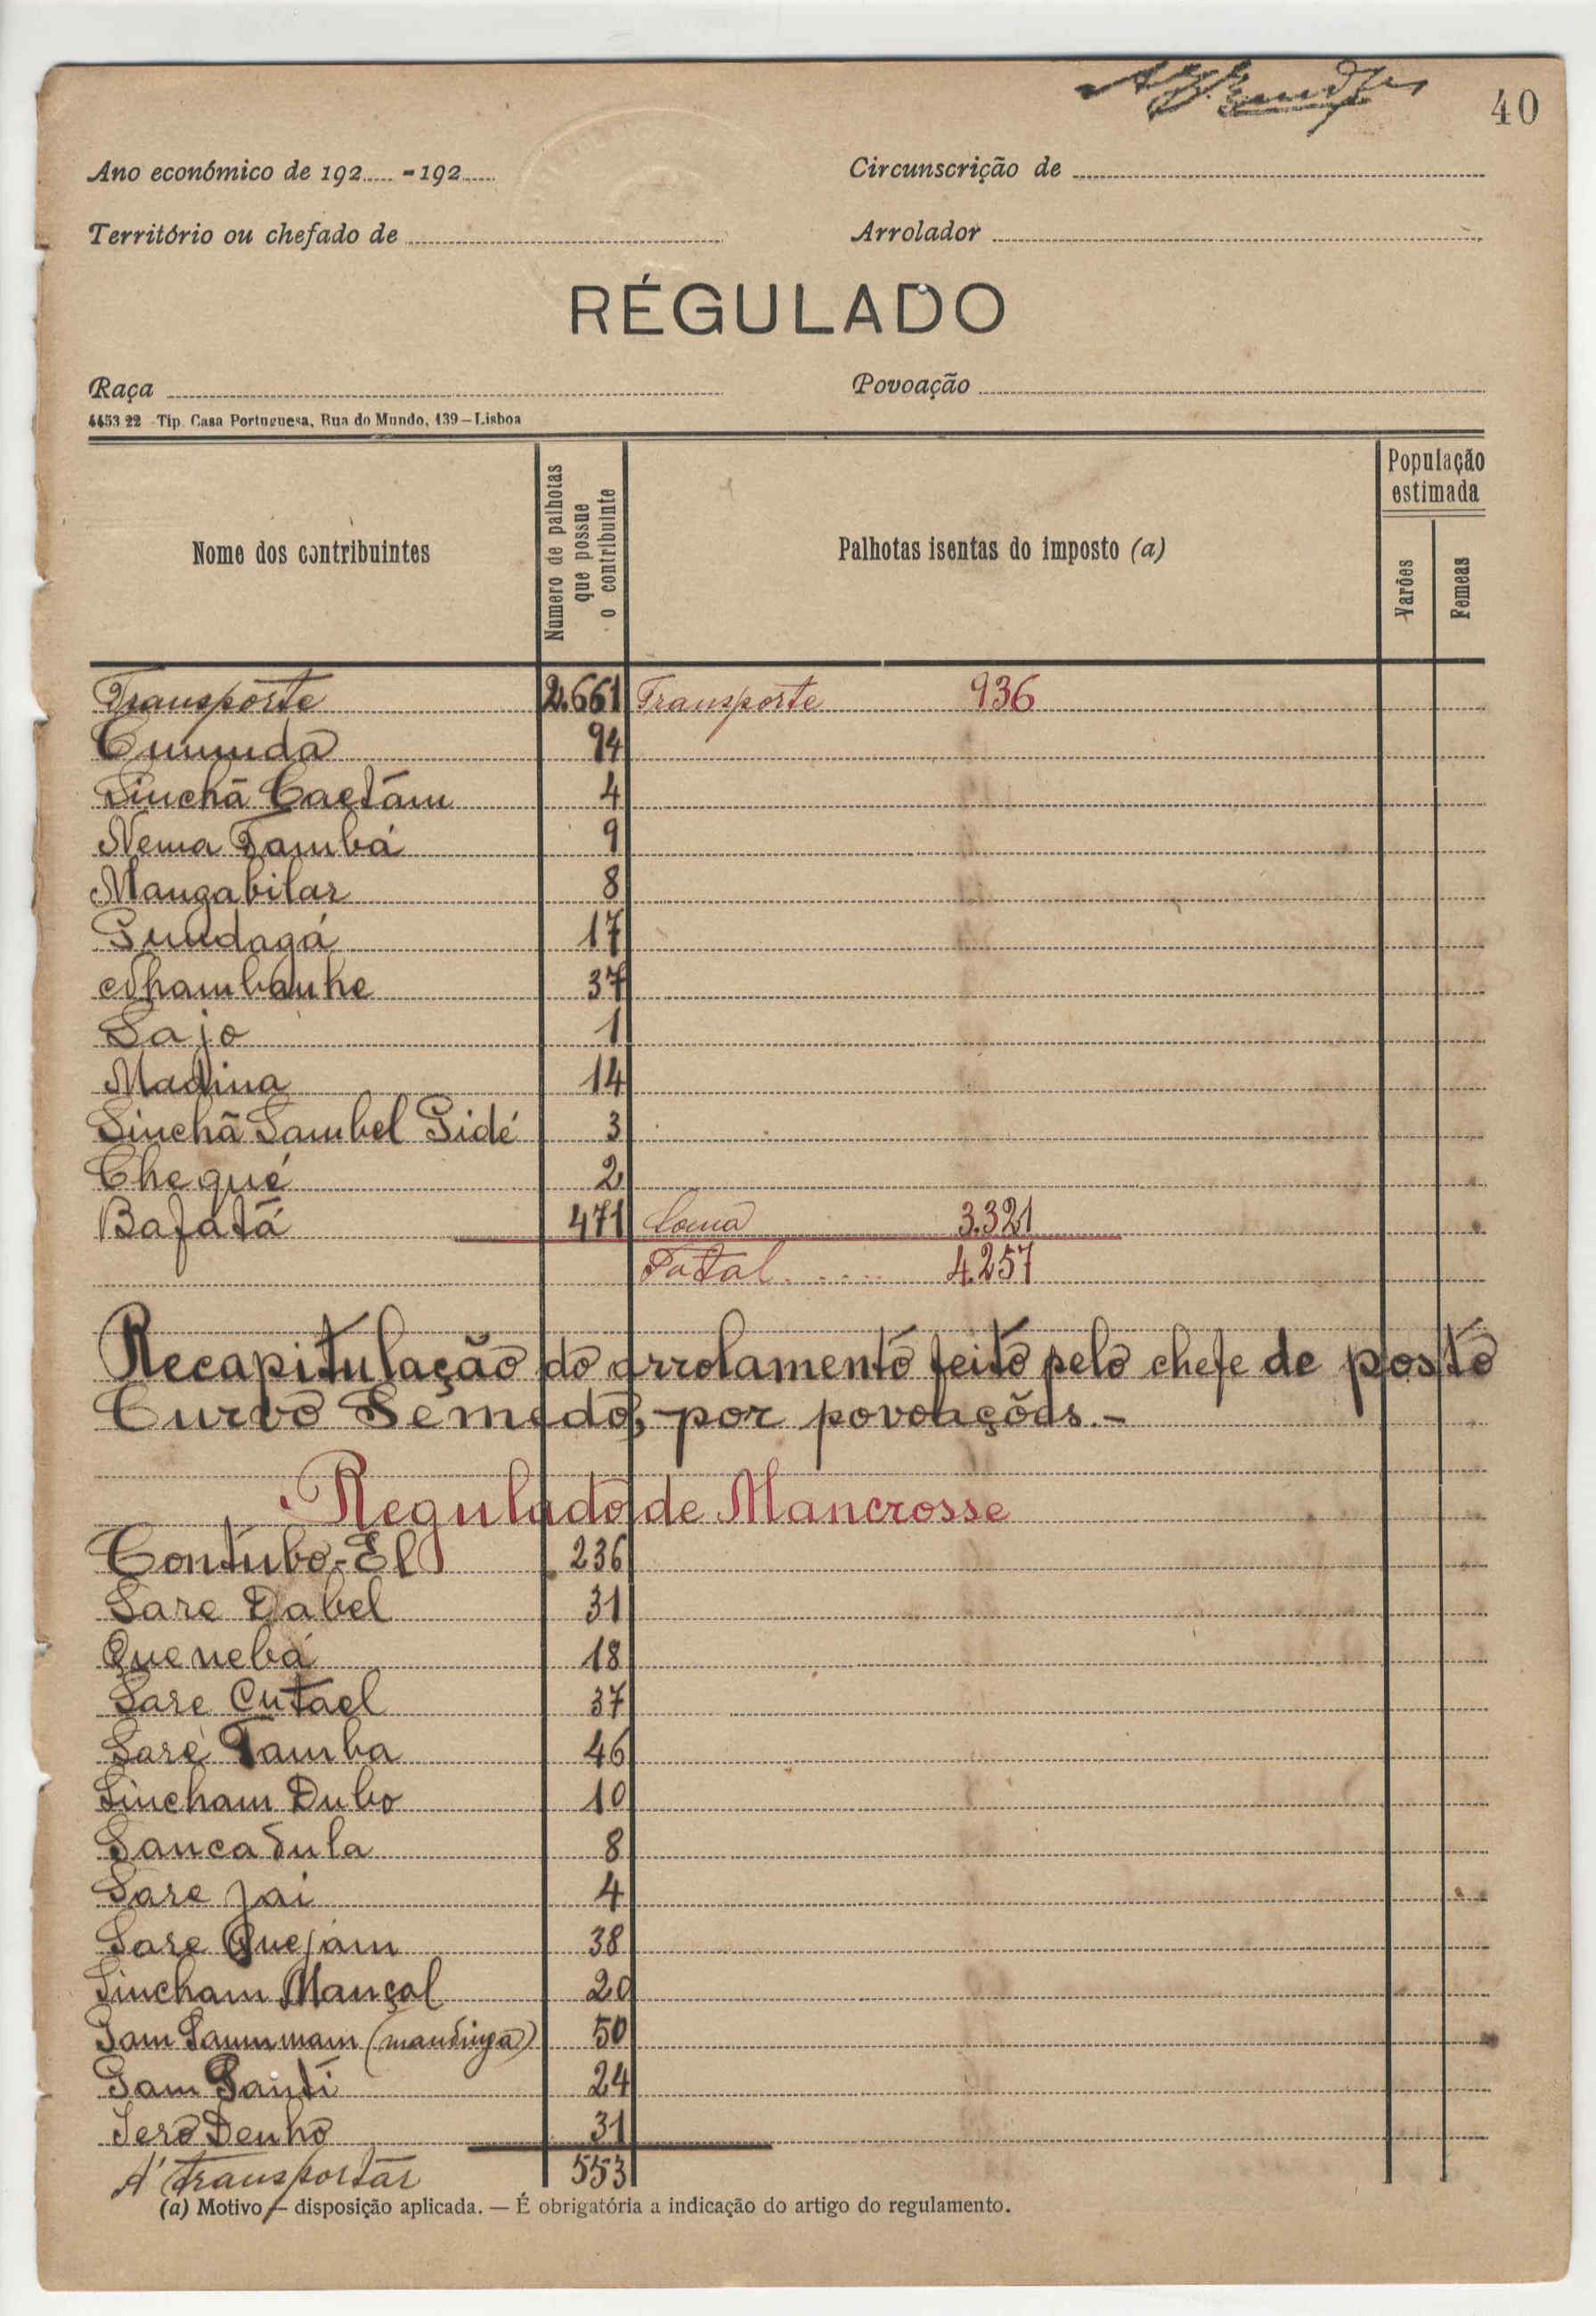 40
Ano económico de 192..... - 192......
Circunscrição de
Território ou chefado de
Arrolador
RÉGULADO
Raça
Povoação
4453 22 - Tip. Casa Portuguesa, Rua do Mundo, 139 — Lisboa
Nome dos contribuintes
Número de palhotas que possue o contribuinte
Palhotas isentas do imposto (a)
População estimada
Varões
Femeas
Transporte 2.661 Transporte 936
Cumuda 94
Sinchã Caetám 4
Nema Tambá 9
Mangabilar 8
Gundagá 17
Nhambanhe 37
Sajo 1
Madina 14
Sinchã Sambel Gidé 3
Chequé 2
Bafatá 471 Soma 3.321
Total...... 4.257
Recapitulação do arrolamento feito pelo chefe de posto
Curvo Semedo, por povoaçõas.-
Regulado de Mancrosse
Contúbo-El 236
Sare Dabel 31
Quenebá 18
Sare Cutael 37
Sare Tamba 46
Sincham Dubo 10
Sancadula 8
Sare Jai 4
Sare Quejám 38
Sincham Mançal 20
Gam (mandinga) 50
Gam Santi 24
Iero Denho 31
A' transportar 553
(a) Motivo — disposição aplicada. — É obrigatória a indicação do artigo do regulamento.